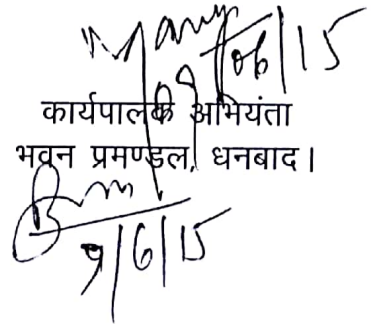 /06/15
कार्यपालक अभियंता
भवन प्रमण्डल, धनबाद।
9/6/15